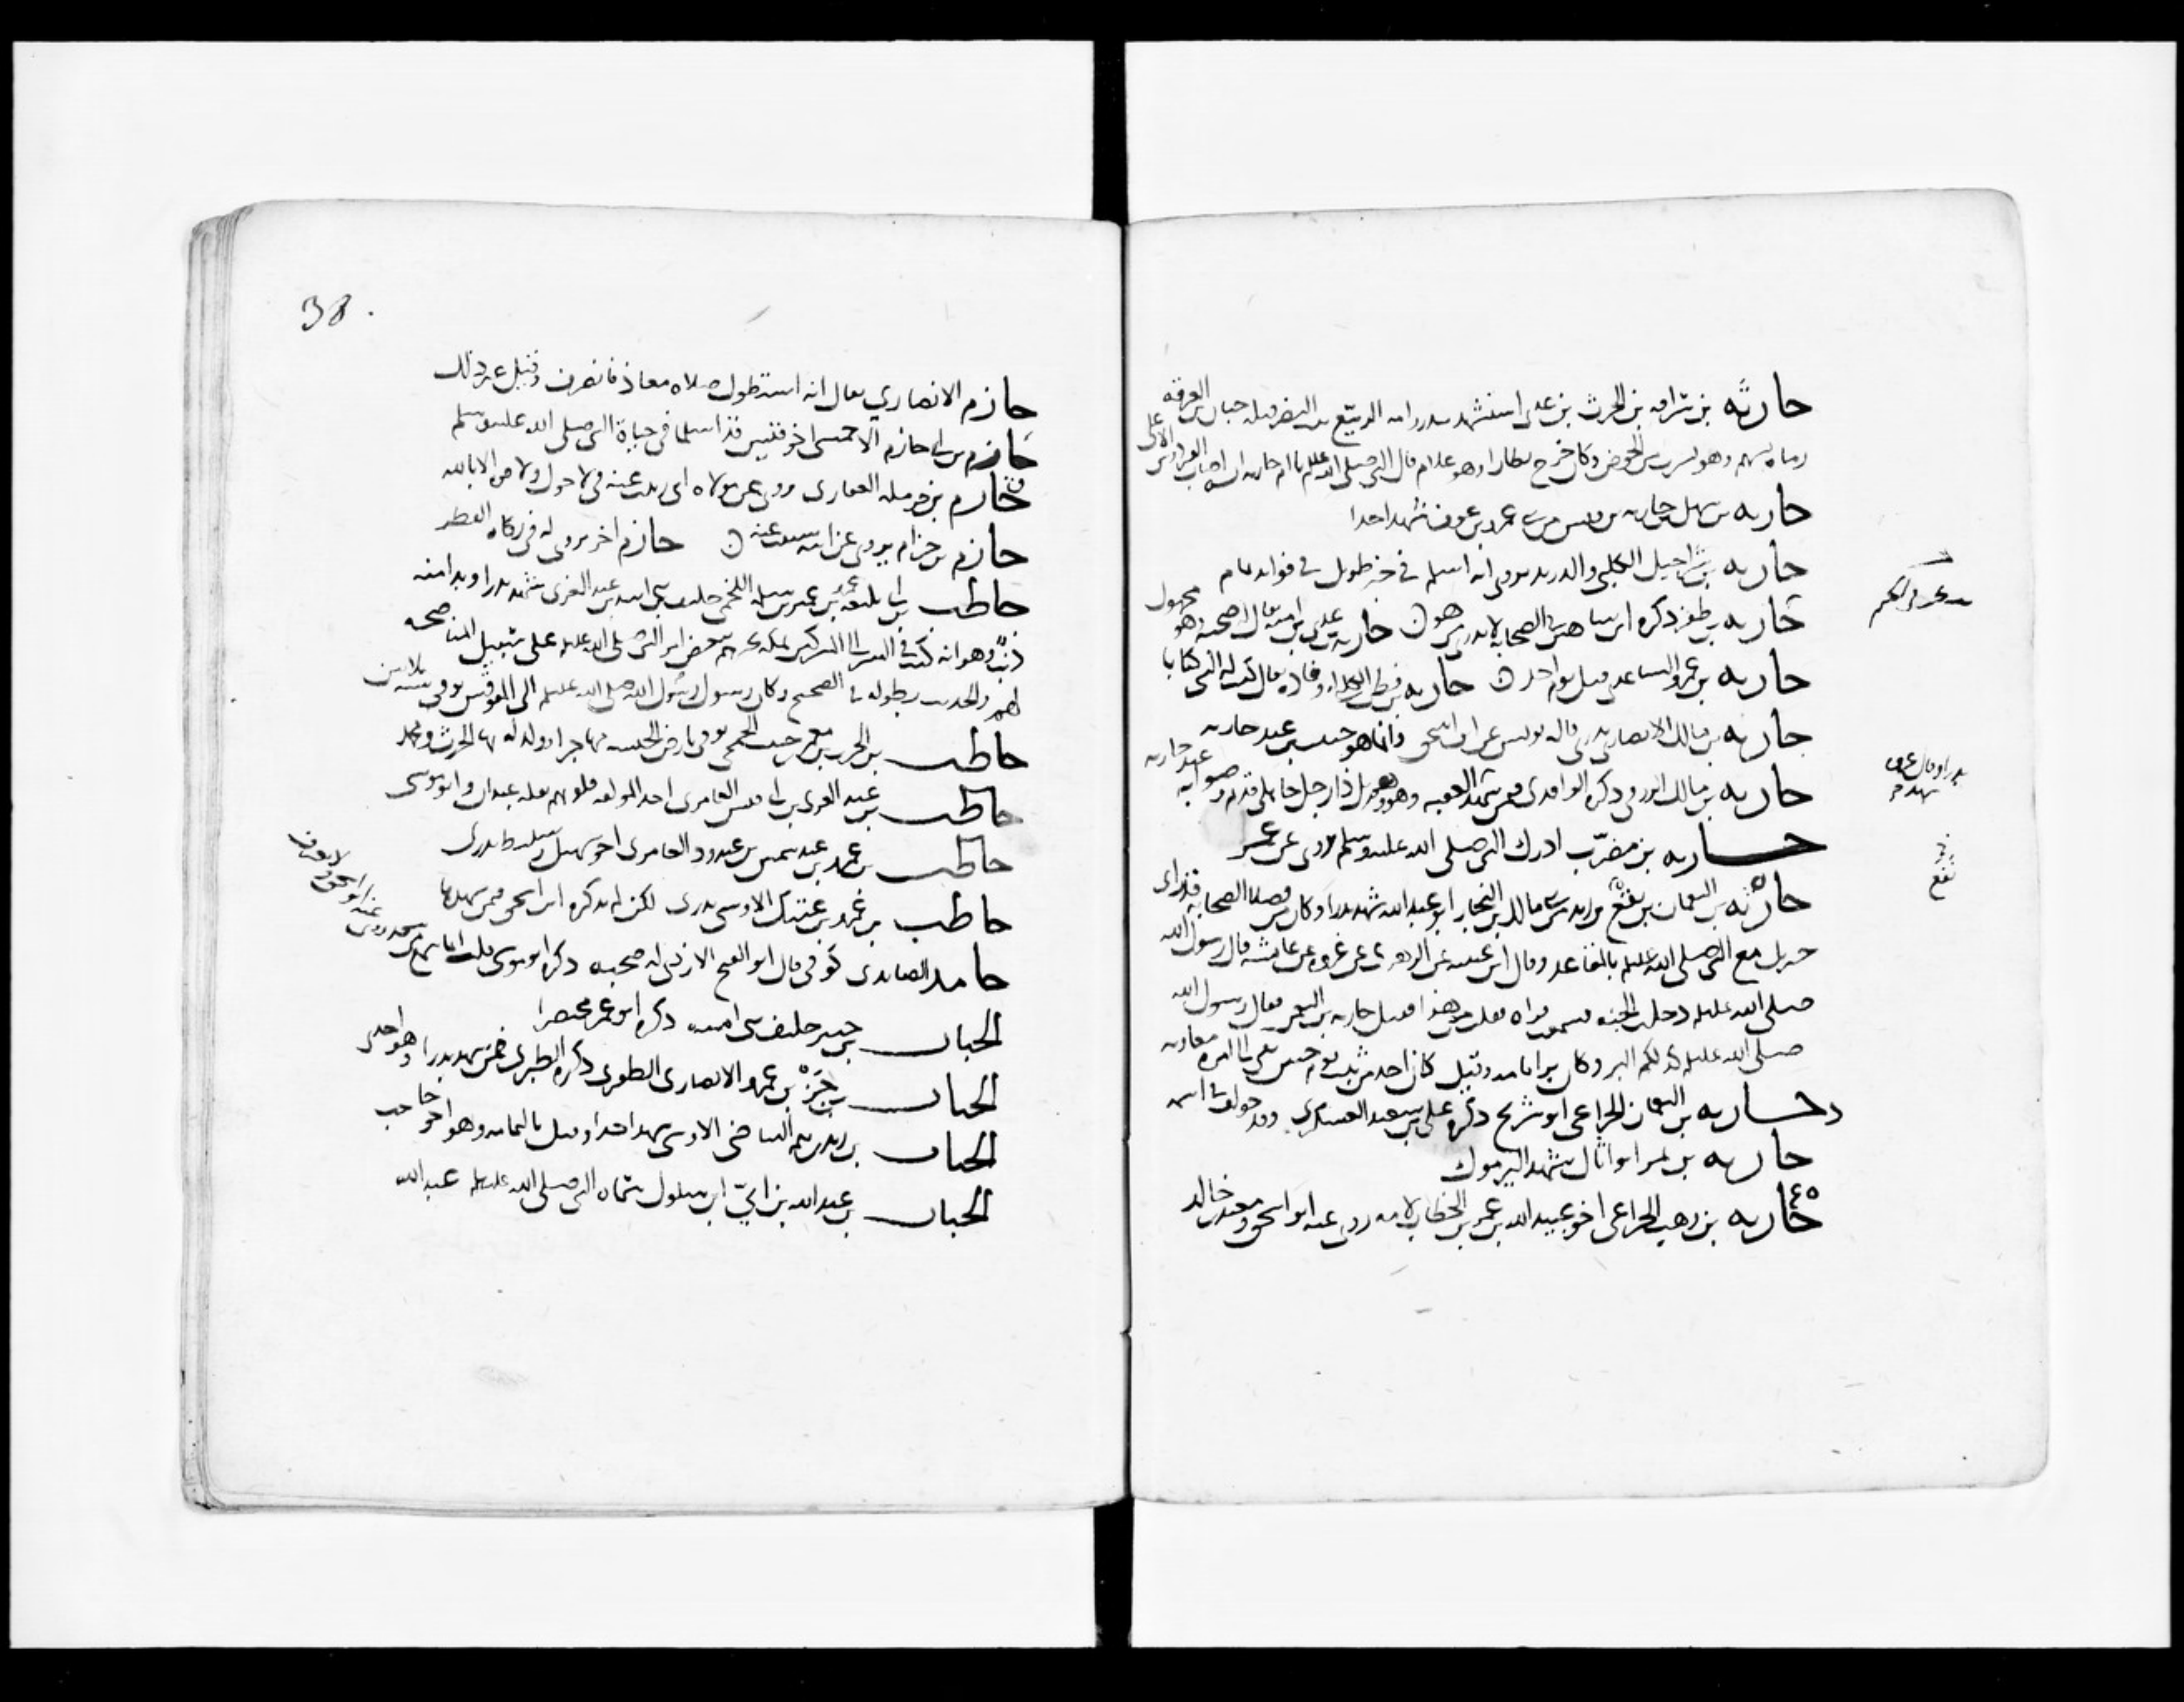 حارثه بن سراقه بن الحرث بن عدي استشهد ببدر وامه الربيع بنت النضر قتله حبان بن العرقه
رماه بسهم وهو يشرب من الحوض وكان خرج نظارا وهو غلام قال النبي صلى الله عليه يا ام حارثه ان ابنك اصاب الفردوس الاعلى
حارثه بن سهل بن حارثه بن قيس من بني عمرو بن عوف شهد احدا
حارثه بن شراحيل الكلبي والد زيد يروى انه اسلم في خبر طويل في فوائد تمام
حارثه بن ظفر ذكره ابن شاهين في الصحابة لا يدرى من هو حارثه بن عدي بن اميه قال له صحبة وهو مجهول
حارثه بن عمرو الساعدي قتل يوم احد حارثه بن قطن الكلبي له وفاده قال كتب له النبي كتابا
حارثه بن مالك الانصاري بدري قاله يونس عن ابن اسحق وانما هو حبيب بن عبد حارثه
حارثه بن مالك الزرقي ذكره الواقدي فيمن شهد العقبه وهو جد رجل جاهلي قديم وصوابه عبد حارثه
حارثه بن مضرب ادرك النبي صلى الله عليه وسلم روى عن عمر
حارثه بن النعمان بن نفع بن زيد من بني مالك بن النجار ابو عبد الله شهد بدرا وكان من فضلا الصحابه قد راى
جبريل مع النبي صلى الله عليه بالمقاعد وقال ابن عيينه عن الزهري عن عروه عن عائشه قال رسول الله
صلى الله عليه دخلت الجنه فسمعت قراه فقلت من هذا فقيل حارثه بن النعمن فقال رسول الله
صلى الله عليه كذلكم البر وكان برا بامه وقيل كان احد من ثبت يوم حنين بقي الى امره معاويه
د حارثه بن النعمان الخزاعي ابو شريح ذكره علي بن سعيد العسكري وقد خولف في اسمه
حارثه بن ابو اثال شهد اليرموك
حارثه بن وهب الخزاعي اخو عبيد الله بن عمر بن الخطاب لامه روى عنه ابو اسحق ومعبد بن خالد
نفع
38
حازم الانصاري يقال انه استطول صلاه معاذ فانصرف وقيل غير ذلك
حازم بن ابي حازم الاحمسي اخو قيس قد اسلما في حياة النبي صلى الله عليه وسلم
ق حازم بن حرمله الغفاري روى عن مولاه ابي زينب عنه في لا حول ولا قوه الا بالله
حازم بن حزام يروى عن ابنه شبيب عنه حازم اخر يروى له في زكاه الفطر
حاطب بن ابي بلتعه عمرو بن عمير بن سلمه اللخمي حليف بني اسد بن عبد العزى شهد بدرا وبدا منه
ذنب وهو انه كتب في السر الى المشركين بمكه يخبرهم ببعض امر النبي صلى الله عليه على سبيل المناصحه
لهم والحديث بطوله في الصحيح وكان رسول رسول الله صلى الله عليه الى المقوقس توفي سنه ثلاثين
حاطب بن الحرث بن معمر بن حبيب الجمحي توفي بارض الحبشه مهاجرا وولد له بها الحرث ومحمد
حاطب بن عبد العزى بن ابي قيس العامري احد المولفه قلوبهم نقله عبدان وابو موسى
حاطب بن عمرو بن عبد شمس بن عبد ود العامري اخو سهيل وسليط بدري
حاطب بن عمرو بن عتيك الاوسي بدري لكن لم يذكره ابن اسحق فيمن شهدها
حامد الصايدي كوفي قال ابو الفتح الازدي له صحبه ذكره ابو موسى قلت انما سمع من سعد روى عنه ابو اسحق ولا يعرف
الحباب بن جبير حليف بني اميه ذكره ابو عمر مختصرا
الحباب بن جزء بن عمرو الانصاري الظفري ذكره الطبري فيمن شهد بدرا وهو احدي
الحباب بن زيد بن تيم البياضي الاوسي شهد احدا وقتل باليمامه وهو اخو حاجب
الحباب بن عبد الله بن ابي ابن سلول سماه النبي صلى الله عليه عبد الله